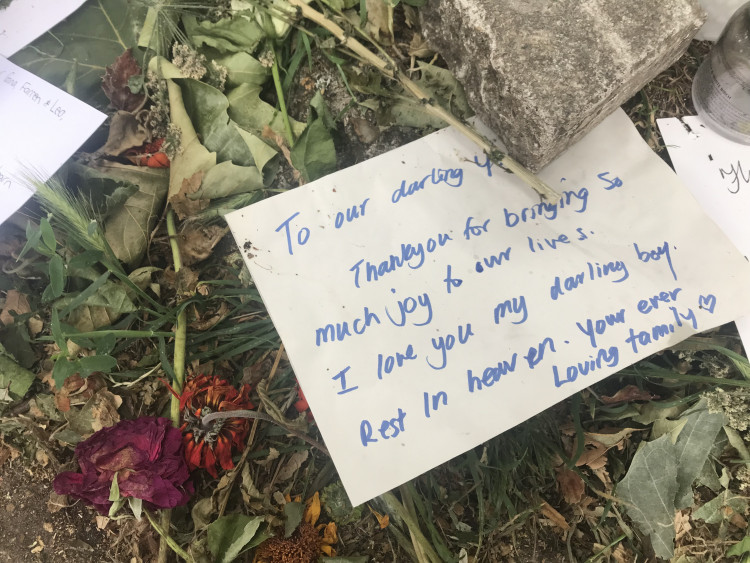 To our darling
Thankyou for bringing so
much joy to our lives.
I love you my darling boy.
Rest In heaven. Your ever
Loving family ♡